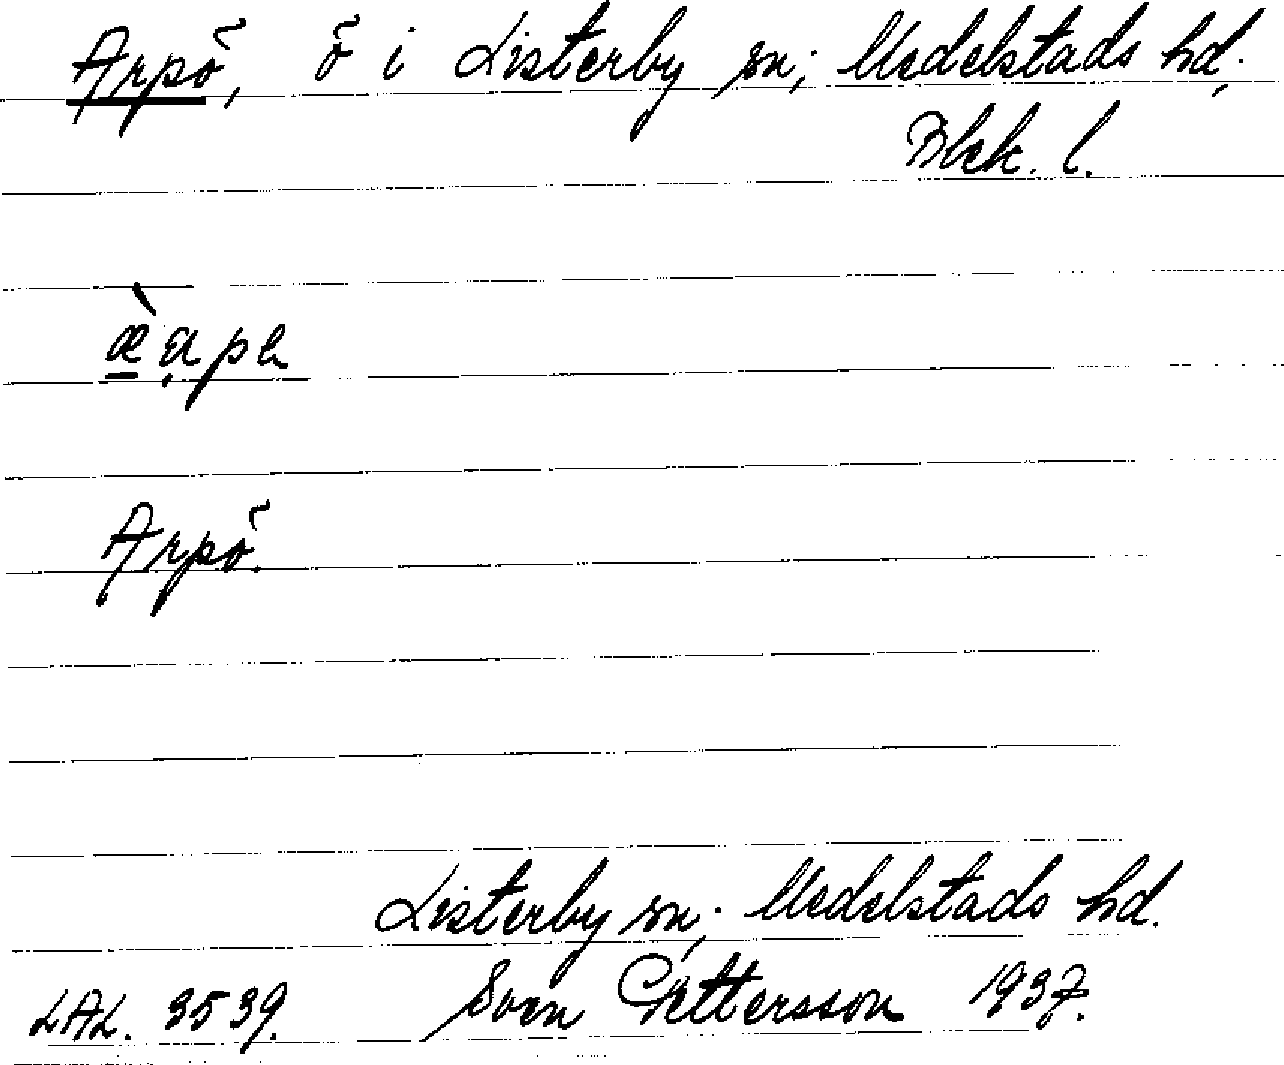 Arpö, ö i Listerby sn; Medelstads hd.
Blek. l.
Arpö.
Listerby sn; Medelstads hd.
LAL. 3539. Sven Pettersson 1937.